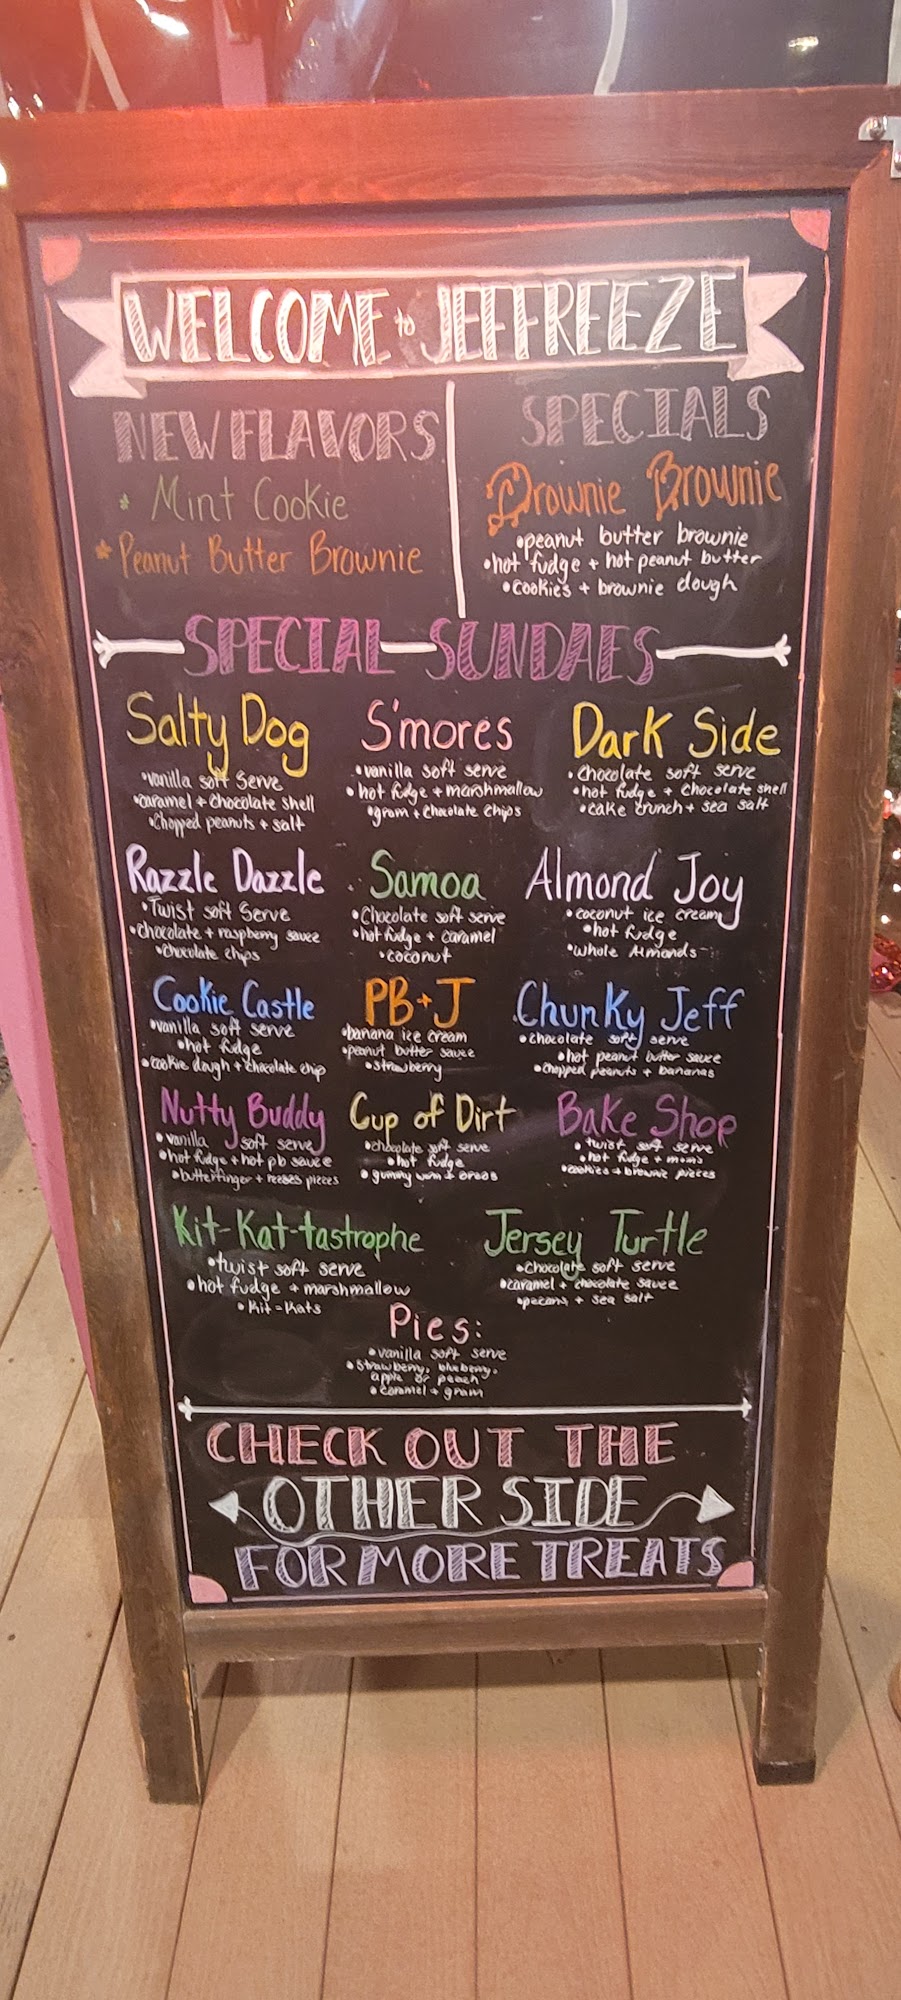 WELCOME to JEFFREEZE
NEW FLAVORS
* Mint Cookie
* Peanut Butter Brownie
SPECIALS
Drownie Brownie
•peanut butter brownie
•hot fudge + hot peanut butter
•cookies + brownie dough
SPECIAL SUNDAES
Salty Dog
•vanilla soft serve
•caramel + chocolate shell
•Chopped peanuts + salt
S'mores
•vanilla soft serve
•hot fudge + marshmallow
•gram + chocolate chips
Dark Side
•Chocolate soft serve
•hot fudge + chocolate shell
•cake crunch + sea salt
Razzle Dazzle
•Twist soft serve
•chocolate + raspberry sauce
•chocolate chips
Samoa
•Chocolate soft serve
•hot fudge + caramel
•coconut
Almond Joy
•coconut ice cream
•hot fudge
•whole Almonds
Cookie Castle
•vanilla soft serve
•hot fudge
•cookie dough + chocolate chip
PB+J
•banana ice cream
•peanut butter sauce
•strawberry
Chunky Jeff
•chocolate soft serve
•hot peanut butter sauce
•chopped peanuts + bananas
Nutty Buddy
•vanilla soft serve
•hot fudge + hot pb sauce
•butterfinger + reeses pieces
Cup of Dirt
•chocolate soft serve
•hot fudge
•gummy worm + oreos
Bake Shop
•twist soft serve
•hot fudge + m+ms
•cookies + brownie pieces
Kit-Kat-tastrophe
•twist soft serve
•hot fudge + marshmallow
•Kit-Kats
Jersey Turtle
•Chocolate soft serve
•caramel + chocolate sauce
•pecans + sea salt
Pies:
•vanilla soft serve
•strawberry, blueberry,
apple or peach
•caramel + gram
CHECK OUT THE
OTHER SIDE
FOR MORE TREATS